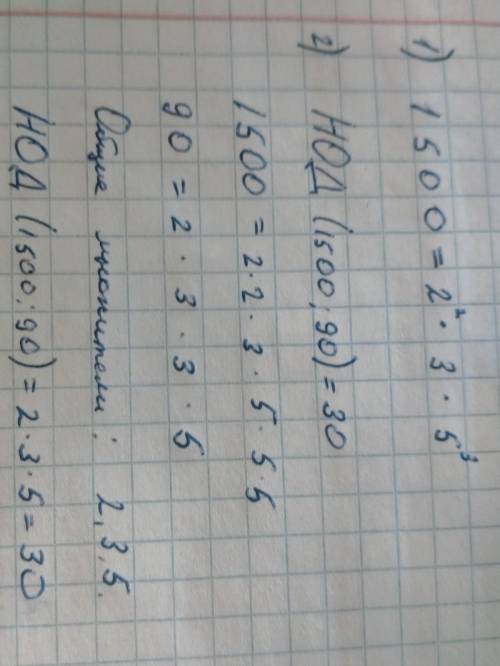 1) 1500 = 2² · 3 · 5³
2) НОД (1500; 90) = 30
1500 = 2 · 2 · 3 · 5 · 5 · 5
90 = 2 · 3 · 3 · 5
Общие множители: 2, 3, 5.
НОД (1500; 90) = 2 · 3 · 5 = 30